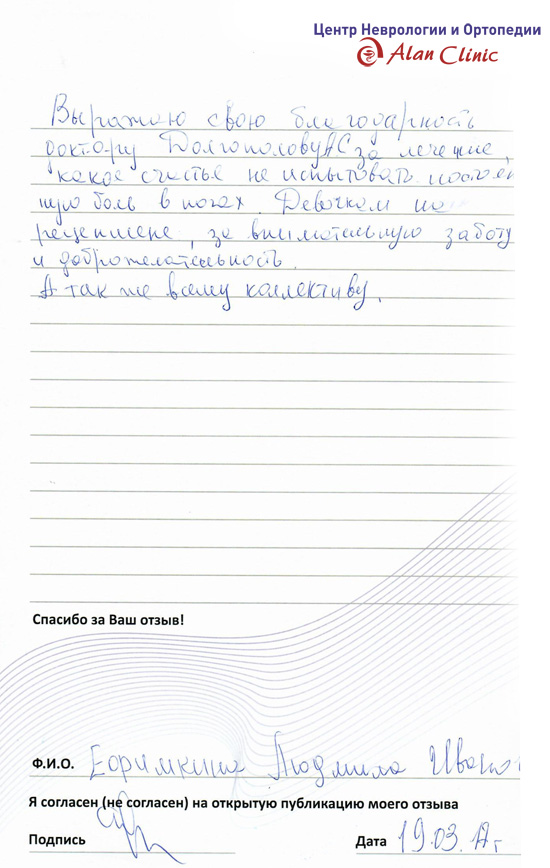 Центр Неврологии и Ортопедии
Alan Clinic
Выражаю свою благодарность
доктору Долгополову АС за лечение,
какое счастье не испытовать постоян
ную боль в ногах. Девочкам на
рецепшене, за внимательную заботу
и доброжелательность.
А так же всему коллективу.
Спасибо за Ваш отзыв!
Ф.И.О. Людмила Ивано
Я согласен (не согласен) на открытую публикацию моего отзыва
Подпись
Дата 19.03.17г